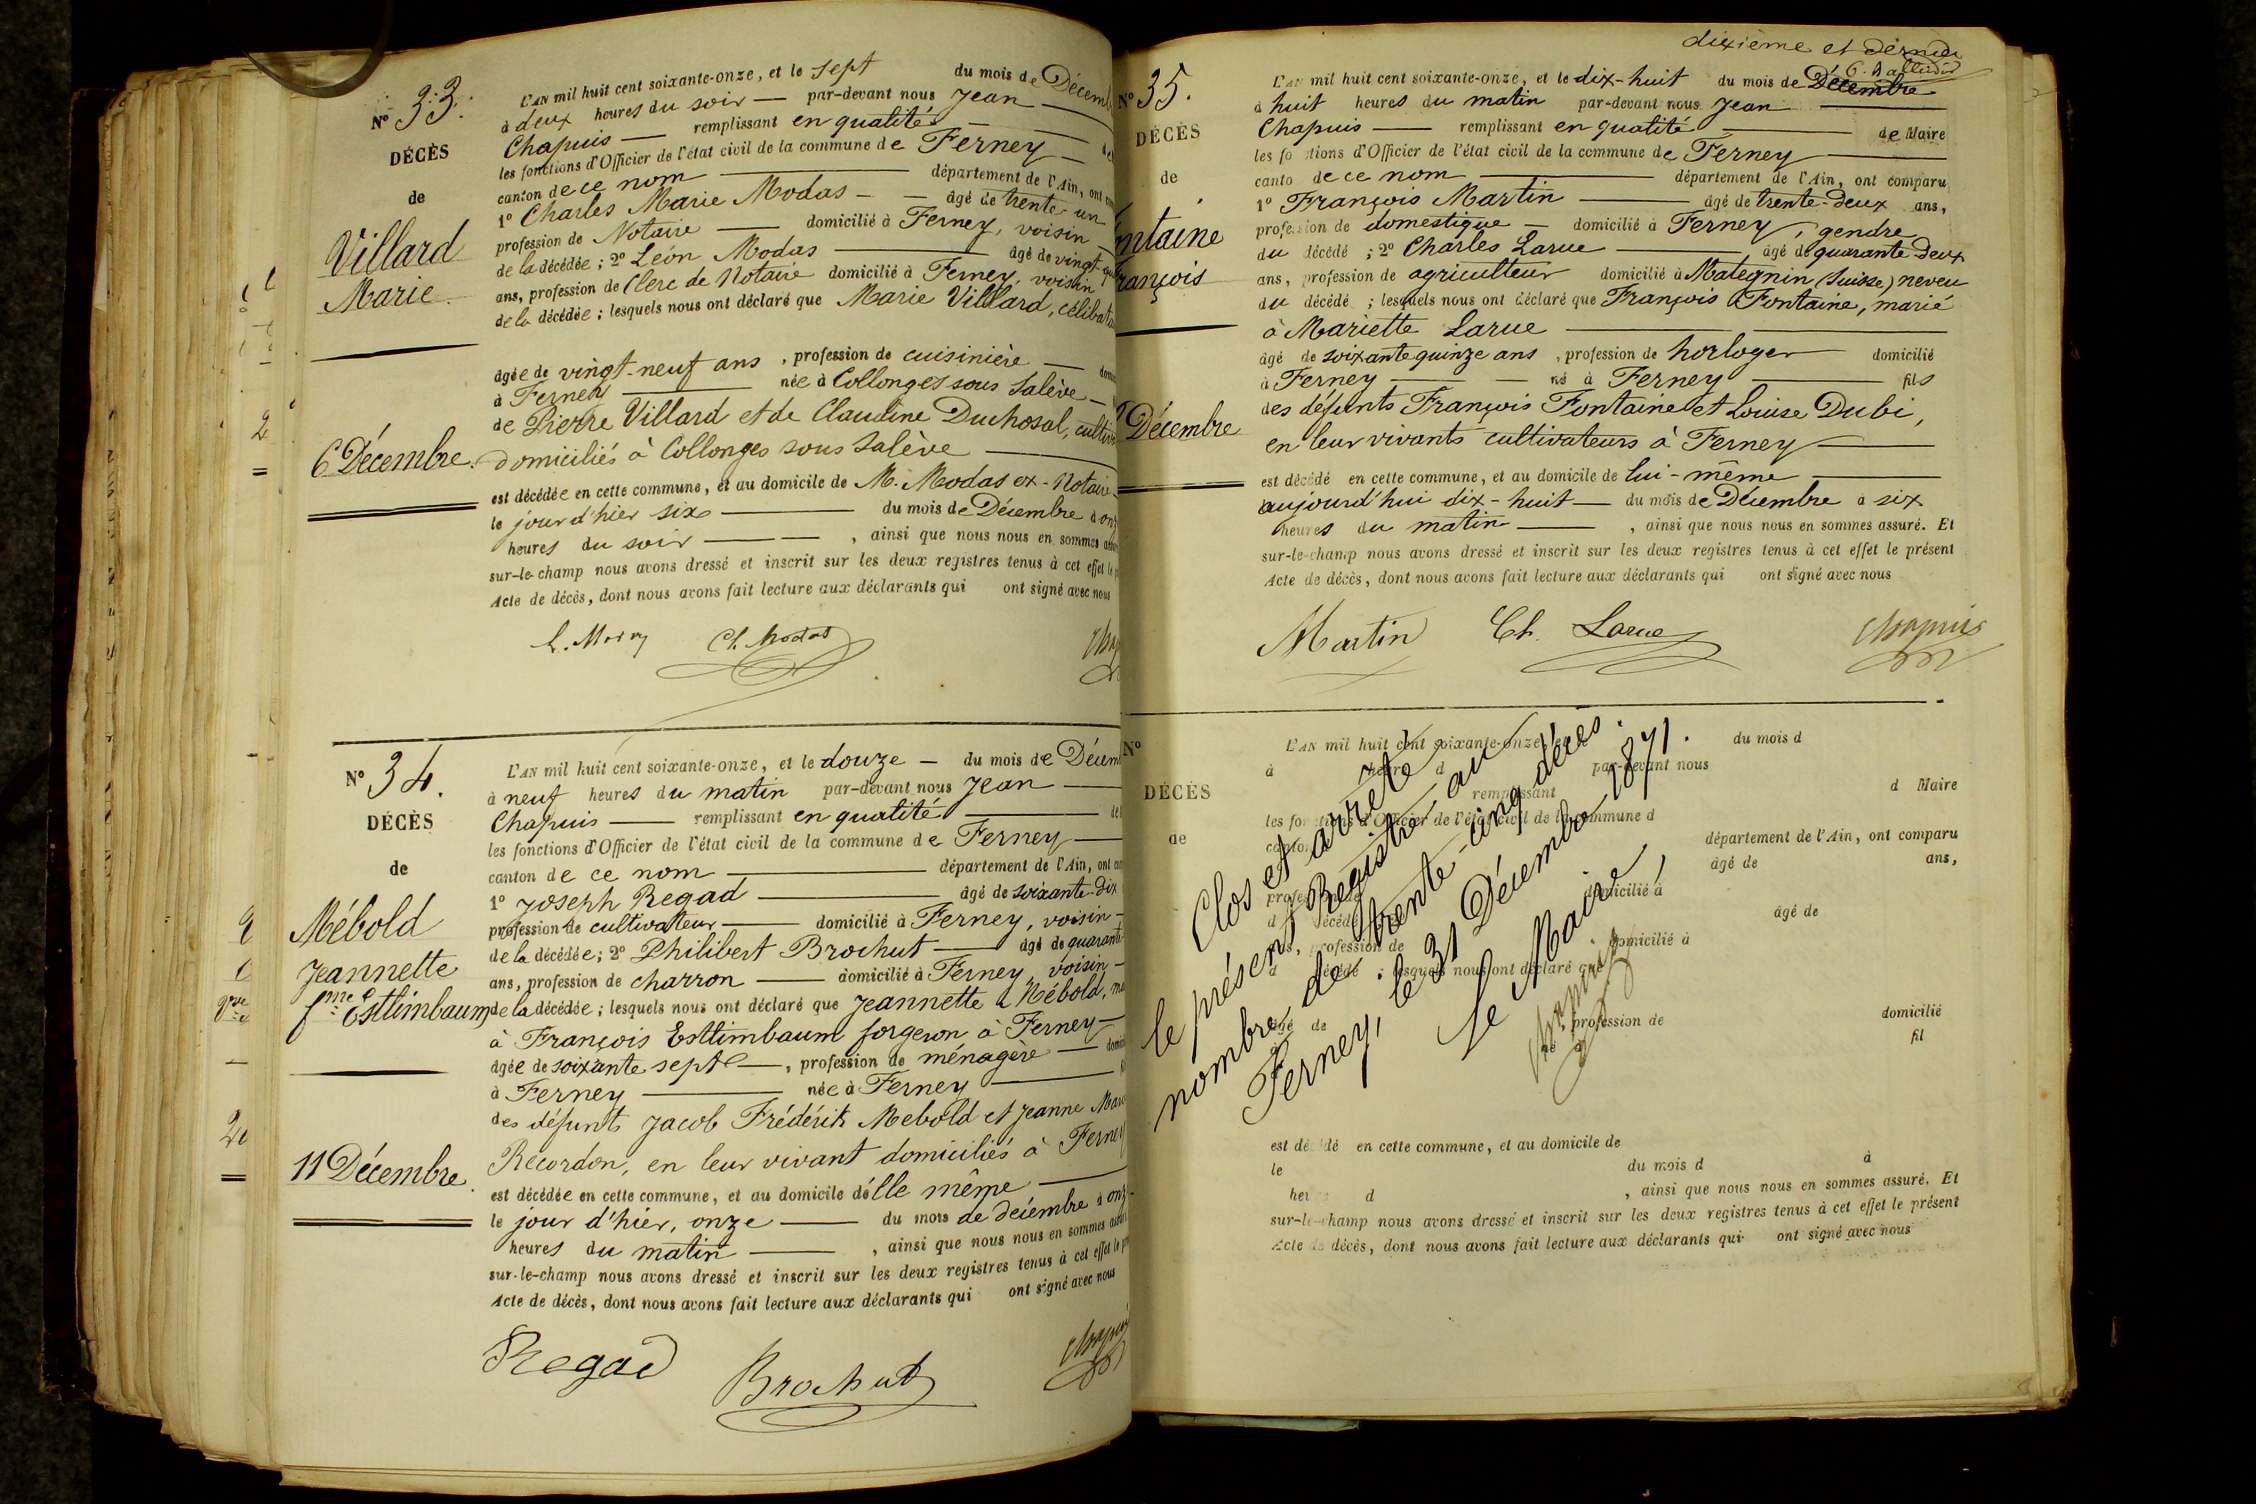 N° 33.
DÉCÈS
de
Villard
Marie.
6 Décembre.
L'AN mil huit cent soixante-onze, et le sept du mois de Décemb
à deux heures du soir — par-devant nous Jean —
Chapuis — remplissant en qualité —
les fonctions d'Officier de l'état civil de la commune de Ferney —
canton de ce nom — département de l'Ain, ont
1° Charles Marie Modas — âgé de trente-un
profession de Notaire — domicilié à Ferney, voisin
de la décédée ; 2° Léon Modas — âgé de vingt
ans, profession de Clerc de Notaire domicilié à Ferney, voisin
de la décédée ; lesquels nous ont déclaré que Marie Villard, céliba
âgée de vingt-neuf ans, profession de cuisinière —
à Ferney — née à Collonges sous Salève —
de Pierre Villard et de Claudine Duchosal, cultiv
domiciliés à Collonges sous Salève —
est décédée en cette commune, et au domicile de M. Modas ex-Notaire
le jour d'hier six — du mois de Décembre à onz
heures du soir — , ainsi que nous nous en sommes
sur-le-champ nous avons dressé et inscrit sur les deux registres tenus à cet effet le
Acte de décès, dont nous avons fait lecture aux déclarants qui ont signé avec nous
Ch. Modas
N° 34.
DÉCÈS
de
Mébold
Jeannette
fme Esttimbaum
11 Décembre.
L'AN mil huit cent soixante-onze, et le douze — du mois de Décem
à neuf heures du matin par-devant nous Jean —
Chapuis — remplissant en qualité —
les fonctions d'Officier de l'état civil de la commune de Ferney —
canton de ce nom — département de l'Ain, ont
1° Joseph Regad — âgé de soixante-dix
profession de cultivateur — domicilié à Ferney, voisin —
de la décédée ; 2° Philibert Brochut — âgé de quarant
ans, profession de charron — domicilié à Ferney, voisin —
de la décédée ; lesquels nous ont déclaré que Jeannette Mébold, ma
à François Esttimbaum forgeron à Ferney —
âgée de soixante sept —, profession de ménagère —
à Ferney — née à Ferney —
des défunts Jacob Frédérik Mebold et Jeanne Mar
Recordon, en leur vivant domiciliés à Ferney
est décédée en cette commune, et au domicile d'elle même —
le jour d'hier, onze — du mois de décembre à onz
heures du matin — , ainsi que nous nous en sommes
sur-le-champ nous avons dressé et inscrit sur les deux registres tenus à cet effet le
Acte de décès, dont nous avons fait lecture aux déclarants qui ont signé avec nous
Regad
Brochut
dixième et dernier
N° 35.
DÉCÈS
de
ontaine
rançois
Décembre
L'AN mil huit cent soixante-onze, et le dix-huit du mois de Décembre
à huit heures du matin par-devant nous Jean —
Chapuis — remplissant en qualité — de Maire
les fo tions d'Officier de l'état civil de la commune de Ferney —
canto de ce nom — département de l'Ain, ont comparu
1° François Martin — âgé de trente-deux ans,
profession de domestique — domicilié à Ferney, gendre
du décédé ; 2° Charles Larue — âgé de quarante-deux
ans, profession de agriculteur domicilié à Mategnin (Suisse) neveu
du décédé ; lesquels nous ont déclaré que François Fontaine, marié
à Mariette Larue —
âgé de soixante quinze ans, profession de horloger domicilié
à Ferney — né à Ferney — fils
des défunts François Fontaine et Louise Dubi,
en leur vivants cultivateurs à Ferney —
est décédé en cette commune, et au domicile de lui-même —
aujourd'hui dix-huit — du mois de Décembre à six
heures du matin — , ainsi que nous nous en sommes assuré. Et
sur-le-champ nous avons dressé et inscrit sur les deux registres tenus à cet effet le présent
Acte de décès, dont nous avons fait lecture aux déclarants qui ont signé avec nous
Martin Ch. Larue Chapuis
N°
DÉCÈS
de
L'AN mil huit cent soixante-onze, et le du mois d
à heure d par-devant nous
remplissant d Maire
les fonctions d'Officier de l'état civil de la commune d
canton département de l'Ain, ont comparu
âgé de ans,
profession domicilié à
d décédé âgé de
ans, profession de domicilié à
d décédé ; lesquels nous ont déclaré que
âgé de profession de domicilié
né à fil
Clos et arrêté
le présent Registre, au
nombre de trente-cinq décès.
Ferney, le 31 Décembre 1871.
Le Maire,
Chapuis
est décédé en cette commune, et au domicile de
le du mois d à
heures d , ainsi que nous nous en sommes assuré. Et
sur-le-champ nous avons dressé et inscrit sur les deux registres tenus à cet effet le présent
Acte de décès, dont nous avons fait lecture aux déclarants qui ont signé avec nous